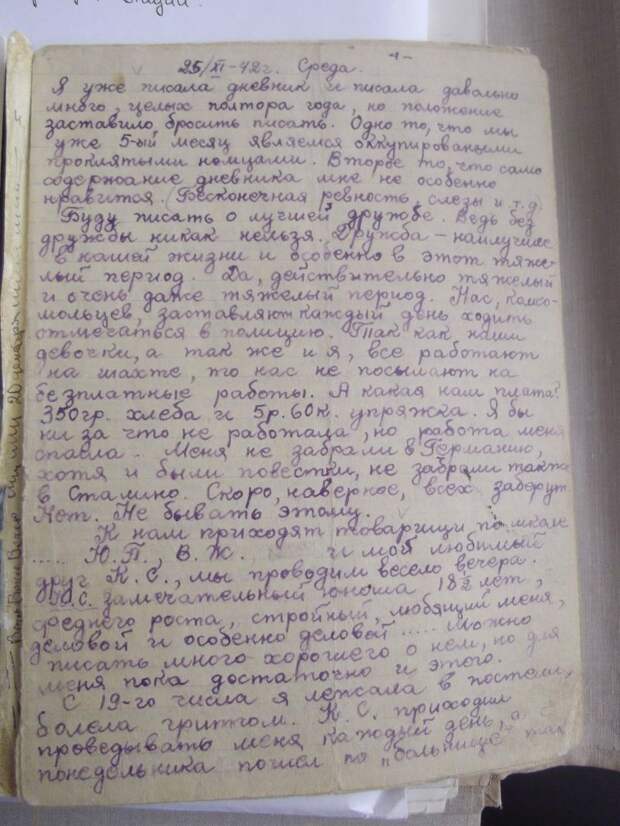 Стадии.
-1-
25/XI-42 г. Среда.
Я уже писала дневник и писала давально
много, целых полтора года, но положение
заставило бросить писать. Одно то, что мы
уже 5-ый месяц являемся оккупированными
проклятыми немцами. Второе то, что само
содержание дневника мне не особенно
нравится. (Бесконечная ревность, слезы и т.д.)
Буду писать о лучшей дружбе. Ведь без
дружбы никак нельзя. Дружба - наилучшее
в нашей жизни и особенно в этот тяже-
лый период. Да, действительно тяжелый
и очень даже тяжелый период. Нас, комсо-
мольцев, заставляют каждый день ходить
отмечаться в полицию. Так как наши
девочки, а так же и я, все работают
на шахте, то нас не посылают на
безплатные работы. А какая нам плата?
350 гр. хлеба и 5 р. 60 к. упряжка. Я бы
ни за что не работала, но работа меня
спасла. Меня не забрали в Германию,
хотя и были повестки, не забрали также
в Сталино. Скоро, наверное, всех заберут.
Нет. Не бывать этому.
К нам приходят товарищи по школе
..... Ю.П., В.Ж. и мой любимый
друг К.С., мы проводим весело вечера.
К.С. замечательный юноша 18½ лет,
среднего роста, стройный, любящий меня,
деловой и особенно деловой ..... Можно
писать много хорошего о нем, но для
меня пока достаточно и этого.
С 19-го числа я лежала в постели,
болела гриппом. К.С. приходил
проведывать меня каждый день, а
понедельника почил "больнице"